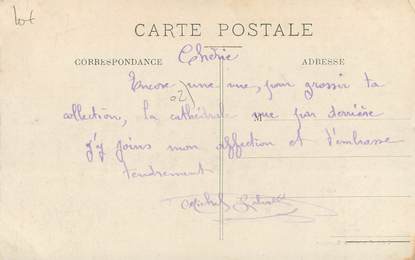 Lot
CARTE POSTALE
CORRESPONDANCE
ADRESSE
Chérie
Encore une vue, pour grossir ta
02
collection, la cathédrale vue par derrière
j'y joins mon affection et t'embrasse
tendrement